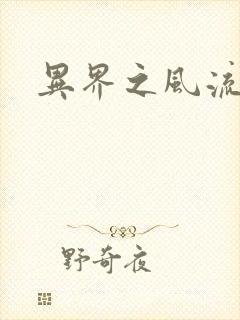 異界之風流
野奇夜